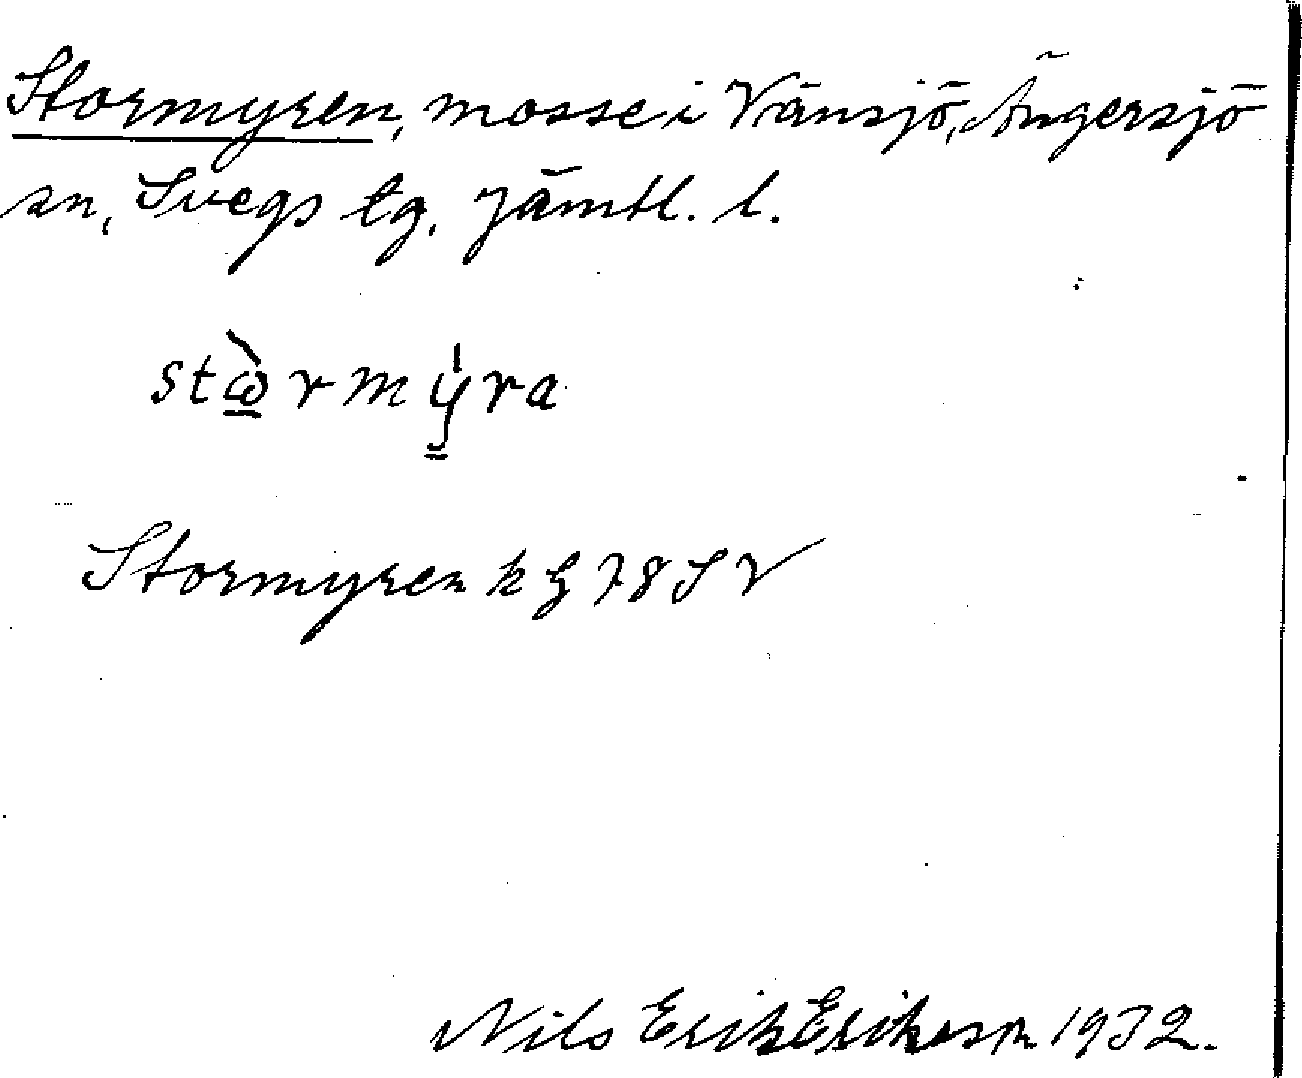 Stormyren, mosse i Vänsjö, Ängersjö
sn, Svegs tg, Jämtl. l.
stὼ̲rmy̲̍ra
Stormyren k G 78 SV
Nils Erik Eriksson 1932.